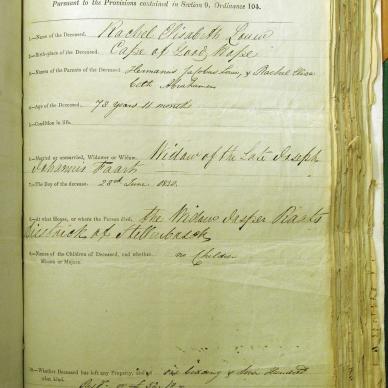 Pursuant to the Provisions contained in Section 9, Ordinance 104.
1.—Name of the Deceased, Rachel Elisabeth Louw
2.—Birth-place of the Deceased, Cape of Good Hope
3.—Names of the Parents of the Deceased, Hermanus Jacobus Louw, & Rachel Elisa
beth
4.—Age of the Deceased, 73 years 11 months
5.—Condition in life,
6.—Married or unmarried, Widower or Widow, Widow of the Late Joseph
Johannes
7.—The Day of the decease, 28th June
8.—At what House, or where the Person died, the Widow Jasper
of Stellenbosch
9.—Names of the Children of Deceased, and whether
Minors or Majors. no Children
10.—Whether Deceased has left any Property, and of
what kind.